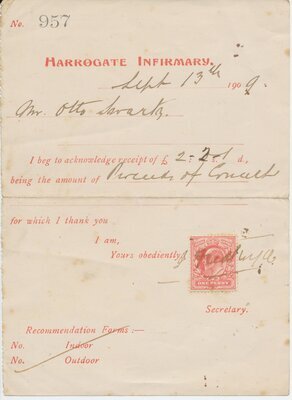 No. 957
HARROGATE INFIRMARY.
Sept 13th 1909.
Mr. Otto Swartz.
I beg to acknowledge receipt of £ 2-2-1 s. d.,
being the amount of Proceeds of Concert
for which I thank you
I am,
Yours obediently,
ONE PENNY
Secretary.
Recommendation Forms:—
No. Indoor
No. Outdoor